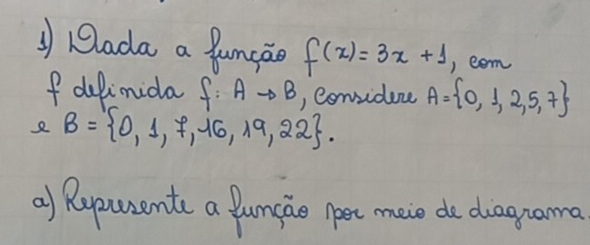 1) Dada a função f(x) = 3x + 1, com
f definida f: A → B, considere A = {0, 1, 2, 5, 7}
e B = {0, 1, 7, 16, 19, 22}.
a) Represente a função por meio de diagrama.